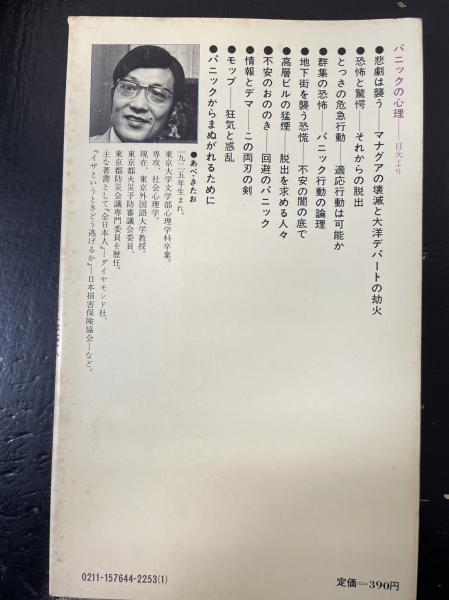 パニックの心理　目次より
●悲劇は襲う——マナグアの壊滅と大洋デパートの劫火
●恐怖と驚愕——それからの脱出
●とっさの危急行動——適応行動は可能か
●群集の恐怖——パニック行動の論理
●地下街を襲う恐慌——不安の闇の底で
●高層ビルの猛煙——脱出を求める人々
●不安のおののき——回避のパニック
●情報とデマ——この両刃の剣
●モッブ——狂気と惑乱
●パニックからまぬがれるために
●あべ・きたお
一九二五年生まれ。
東京大学文学部心理学科卒業。
専攻、社会心理学。
現在、東京外国語大学教授。
東京都火災予防審議会委員、
東京都防災会議専門委員を歴任。
主な著書として『全日本人』—ダイヤモンド社、
『イザというときどう逃げるか』—日本損害保険協会—など。
0211-157644-2253(1)
定価=390円